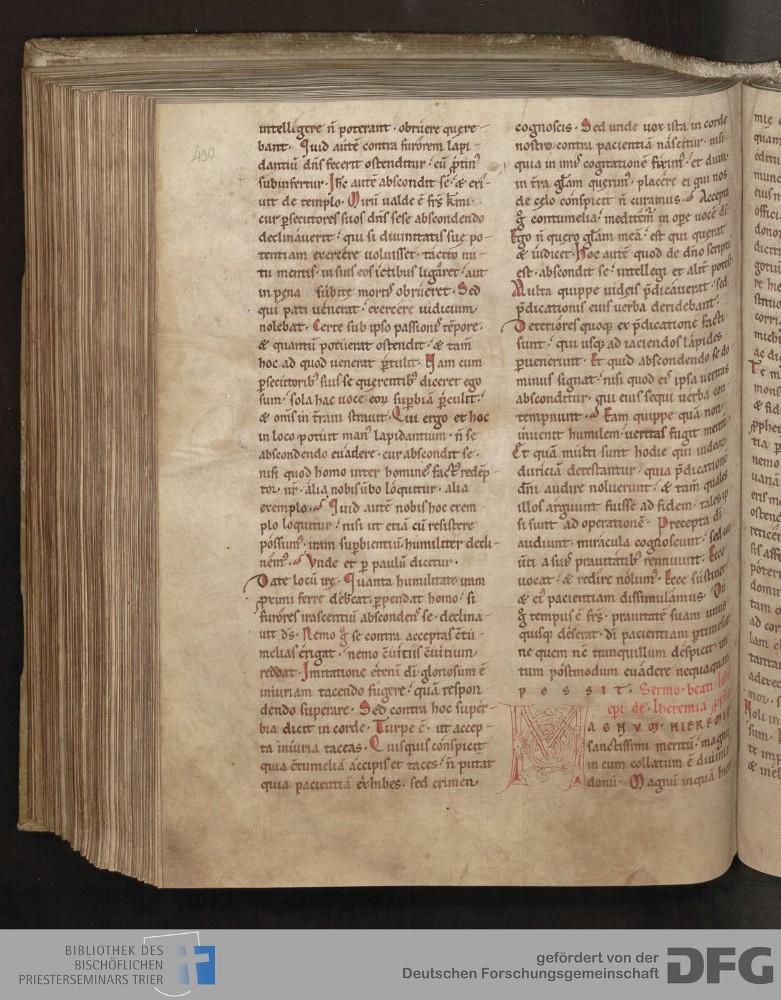 430
intelligere ñ poterant · obruere quere-
bant · Quid autē contra furorem lapi-
dantiū dñs fecerit ostenditur · cū ꝓtin᷒
subinfertur · Ihc autē abscondit se · & exi-
uit de templo · Mirū ualde ē frs kmi ·
cur ꝑsecutores suos dñs sese abscondendo
declinauerit · qui si diuinitatis sue po-
tentiam exercere uoluisset · tacito nu-
tu mentis · in suis eos ictibus ligaret · aut
in pena subite mortis obrueret · Sed
qui pati uenerat · exercere iudicium
nolebat · Certe sub ipso passionis tēpore ·
& quantū potuerat ostendit · & tam̄
hoc ad quod uenerat ꝑtulit · Nam cum
ꝑsecutorib᷒ suis se querentib᷒ diceret ego
sum · sola hac uoce eoꝝ suꝑbiā ꝑculit ·
& om̄s in t̄ram strauit · Qui ergo et hoc
in loco potuit man᷒ lapidantium · ñ se
abscondendo euadere · cur abscondit se ·
nisi quod homo inter homines fact᷒ redēp-
tor nr̄ · alia nobis ūbo loquitur · alia
exemplo · Quid autē nobis hoc exem
plo loquitur · nisi ut etiā cū resistere
possum᷒ · iram suꝑbientiū humiliter decli-
nem᷒ · Vnde et ꝑ paulū dicitur ·
Date locū ire · Quanta humilitate iram
ꝓximi ferre debeat · ꝑpendat homo · si
furores irascentiū abscondens se · declina-
uit d̄s · Nemo g̊ se contra acceptas c̄tu-
melias erigat · nemo c̄uitiis c̄uitium
reddat · Imitatione etenī di gloriosum ē
iniuriam tacendo fugere · quā respon
dendo superare · Sed contra hoc super-
bia dicit in corde · Turpe ē · ut accep-
ta iniuria taceas · Quisquis conspicit
quia c̄tumelia accipis et taces · ñ putat
quia pacientiā exhibes · sed crimen
cognoscis · Sed unde uox ista in corde
nostro contra pacientiā nascitur · nisi
quia in imis cogitationē fixim᷒ · et dum
in t̄ra gl̄am querim᷒ · placere ei qui nos
de celo conspicit ñ curamus · Accepta
g̊ contumelia · meditem̄ in oꝑe uocē di
Ego ñ quero gl̄am meā · est qui querat
& iudicet · Hoc autē quod de dño scriptū
est · abscondit se · intellegi et alit̄ potest
Multa quippe iudeis p̄dicauerat · sed
p̄dicationis eius uerba deridebant ·
Deteriores quoqꝫ ex p̄dicatione facti
sunt · qui usqꝫ ad iaciendos lapides
ꝑuenerunt · Et quid abscondendo se do
minus signat · nisi quod eis ipsa ueritas
absconditur · qui eius sequi uerba con
tempnunt · Eam quippe quā non
inuenit humilem · ueritas fugit mentē ·
Et quā multi sunt hodie qui iudeoꝝ
duriciā detestantur · quia p̄dicationē
dn̄i audire noluerunt · & tam̄ quales
illos arguunt fuisse ad fidem · tales ip
si sunt ad operationē · Precepta di
audiunt · miracula cognoscunt · sed con
ūti a suis prauitatib᷒ rennuunt · Ecce
uocat · & redire nolum᷒ · Ecce sustinet ·
& ei᷒ pacientiam dissimulamus · Dū
g̊ tempus ē frs · prauitatē suam unus
quisqꝫ deserat · di pacientiam ꝑtimescat
ne quem nc̄ tranquillum despicit · ira
tum postmodum euadere nequaquam
POSSIT · Sermo · beati
epi · de · Iheremia ꝓphe
MAGNVM · HIEREMIE
sanctissimi meritū · magnū
in eum collatum ē diuinū
donū · Magnū inquā hiere
BIBLIOTHEK DES
BISCHÖFLICHEN
PRIESTERSEMINARS TRIER
gefördert von der
Deutschen Forschungsgemeinschaft
DFG